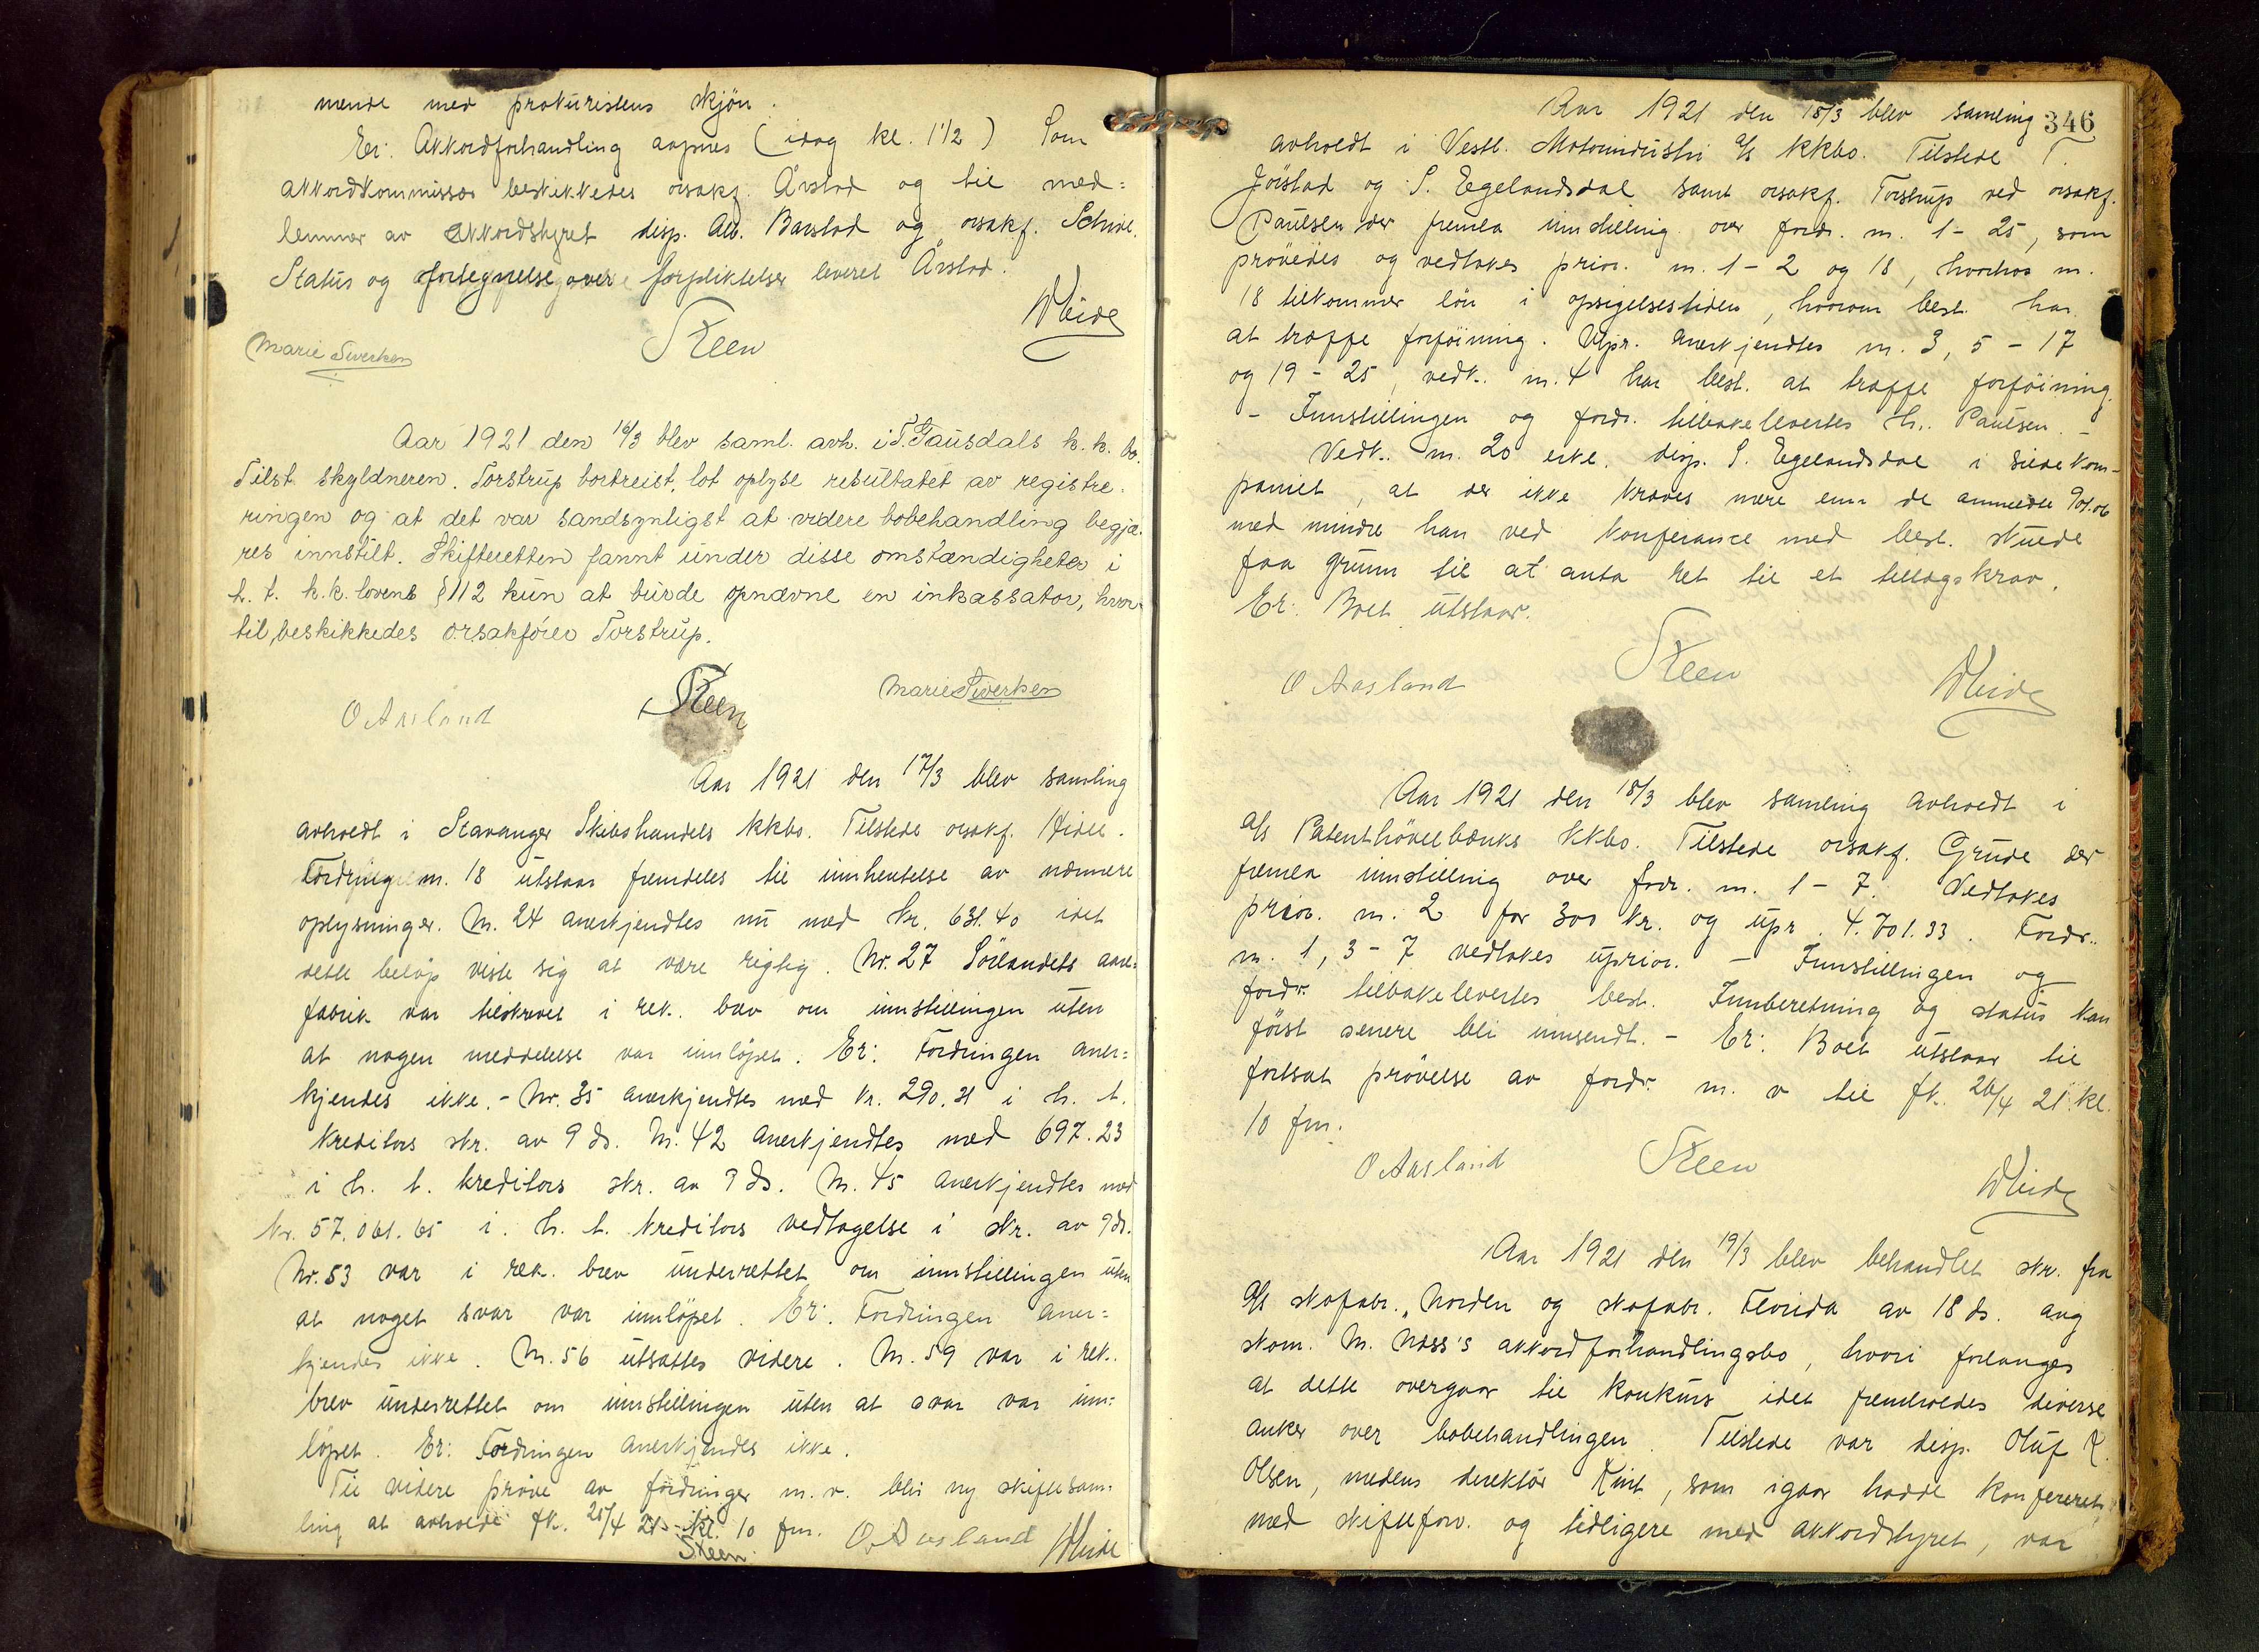 mende med prokuristens skjön.
Er: Akkordforhandling aapnes (idag kl. 1 1/2) Som
akkordkommissær beskikkedes orsakf. Årstad og til med=
lemmer av akkordstyret disp. Alb. Barstad og orsakf. Schive.
Status og fortegnelse over forpliktelser leveret Årstad.
Steen
Marie Siverksen
Aar 1921 den 16/3 blev saml. avh. i T. Gausdals k.k.bo.
Tilst. skyldneren. Torstrup bortreist, lot oplyse resultatet av registre-
ringen og at det var sandsynligst at videre bobehandling begjæ-
res innstilt. Skifteretten fannt under disse omstændigheter i
h. t. k.k. lovens § 112 kun at burde opnævne en inkassator, hvor-
til beskikkedes orsakfører Torstrup.
O Aasland Steen Marie Siverksen
Aar 1921 den 17/3 blev samling
avholdt i Stavanger Skibshandels kkbo. Tilstede orsakf. Hidle.
Fordring nr. 18 utstaar fremdeles til innhentelse av nærmere
oplysninger. Nr. 24 anerkjendtes nu med kr. 631.40 idet
dette beløp viste sig at være rigtig. Nr. 27 Sörlandets
fabrik var tilskrevet i rek. brev om innstillingen uten
at nogen meddelelse var innløpet. Er: Fordringen aner=
kjendes ikke. - Nr. 35 anerkjendtes med kr. 290.31 i h. t.
kreditors skr. av 9 ds. Nr. 42 anerkjendtes med 697.23
i h. t. kreditors skr. av 9 ds. Nr. 45 anerkjendtes med
kr. 57.061.65 i h. t. kreditors vedtagelse i skr. av 9 ds.
Nr. 53 var i rek. brev underrettet om innstillingen uten
at noget svar var innløpet. Er: Fordringen aner=
kjendes ikke. Nr. 56 utsattes videre. Nr. 59 var i rek.
brev underrettet om innstillingen uten at svar var inn=
løpet. Er: Fordringen anerkjendes ikke.
Til videre prøve av fordringer m.v. blir ny skiftesam=
ling at avholde fk. 25/4 21 - kl. 10 fm. O. Aasland
Steen
346
Aar 1921 den 18/3 blev samling
avholdt i Vestl. Motorindustri a/s kkbo. Tilstede T.
Jörstad og S. Egelandsdal samt orsakf. Torstrup ved orsakf.
Paulsen der fremla innstilling over fordr. nr. 1 - 25, som
prövedes og vedtokes prior. nr. 1 - 2 og 18, hvorhos nr.
18 tilkommer lön i opsigelsestiden, hvorom best. har
at træffe forföining. Upr. anerkjendtes nr. 3, 5 - 17
og 19 - 25, vedk. nr. 4 har best. at træffe forföining.
- Innstillingen og fordr. tilbakelevertes Hr. Paulsen. -
Vedk. nr. 20 erkl. disp. S. Egelandsdal i sildekom-
paniet, at der ikke kræves mere enn de anmeldte 901.06
med mindre han ved konferanse med best. skulde
faa grunn til at anta ret til et tillægskrav.
Er: Boet utstaar.
O Aasland Steen
Aar 1921 den 18/3 blev samling avholdt i
a/s Patenthövelbænks kkbo. Tilstede orsakf. Grude der
fremla innstilling over fordr. nr. 1 - 7. Vedtokes
prior. nr. 2 for 300 kr. og upr. 4.701.33. Fordr.
nr. 1, 3 - 7 vedtokes uprior. - Innstillingen og
fordr. tilbakelevertes best. Innberetning og status kan
först senere bli innsendt. - Er: Boet utstaar til
fortsat prövelse av fordr. m. v til fk. 26/4 21. kl.
10 fm.
O Aasland Steen
Aar 1921 den 19/3 blev behandlet skr. fra
A/s skofabr. Norden og skofabr. Florida av 18 ds. ang
skom. M. Næss's akkordforhandlingsbo, hvori forlanges
at dette overgaar til konkurs idet fremholdes diverse
anker over bobehandlingen. Tilstede var disp. Oluf K.
Olsen, medens direktör Kint, som igaar hadde konfereret
med skifteforv. og tidligere med akkordstyret, var